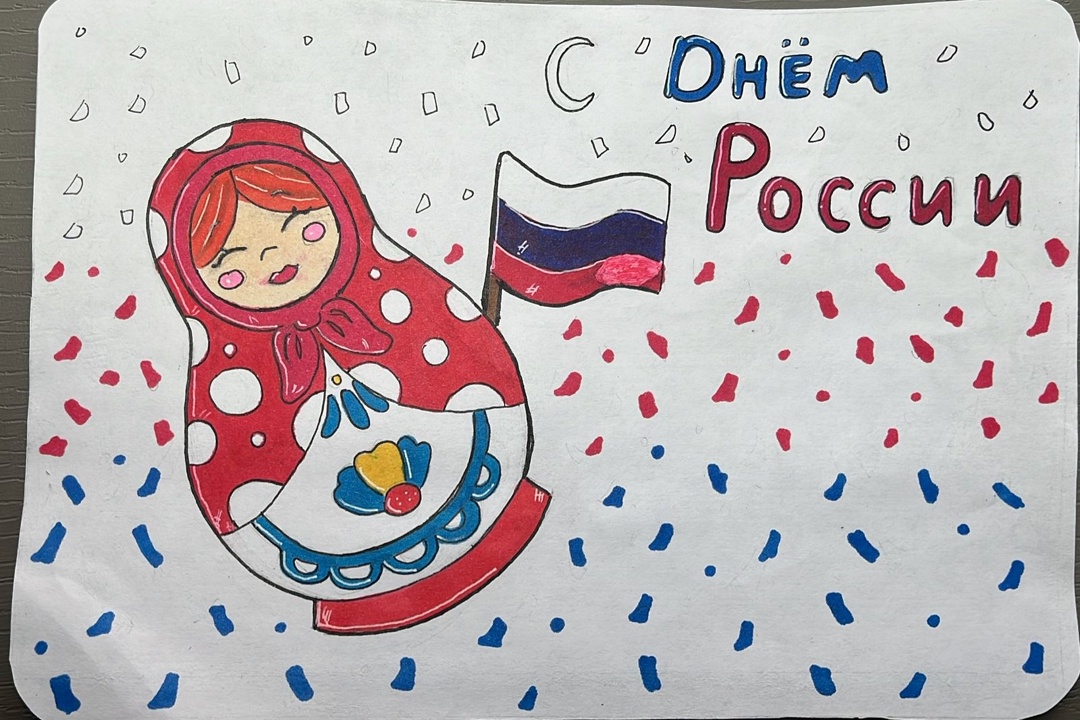 С Днём
России